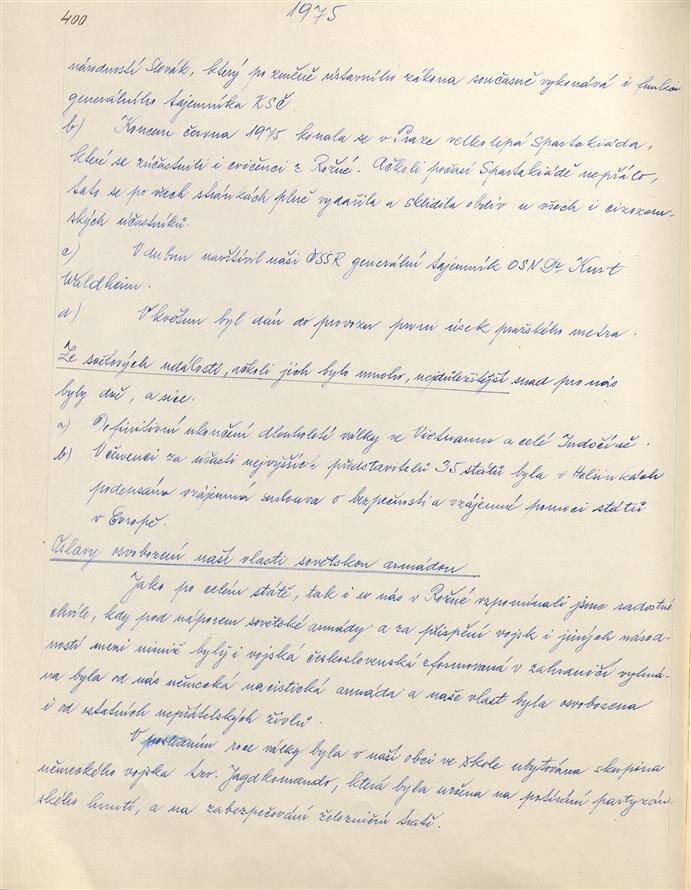 400
1975
národností Slovák, který po změně ústavního zákona současně vykonává i funkci
generálního tajemníka KSČ.
b) Koncem června 1975 konala se v Praze velkolepá Spartakiáda,
které se zúčastnili i cvičenci z Rožné. Ačkoli počasí Spartakiádě nepřálo,
tato se po všech stránkách plně vydařila a sklidila obdiv u všech i cizozem-
ských účastníků.
c) V dubnu navštívil naši ČSSR generální tajemník OSN Dr. Kurt
Waldheim.
d) V květnu byl dán do provozu první úsek pražského metra.
Ze světových událostí, ačkoli jich bylo mnoho, nejdůležitější snad pro nás
byly dvě, a sice:
a) Definitivní ukončení dlouholeté války ve Vietnamu a celé Indočíně.
b) V červenci za účasti nejvyšších představitelů 35 států byla v Helsinkách
podepsána vzájemná smlouva o bezpečnosti a vzájemné pomoci států
v Evropě.
Oslavy osvobození naší vlasti sovětskou armádou
Jako po celém státě, tak i u nás v Rožné vzpomínali jsme radostné
chvíle, kdy pod náporem sovětské armády a za přispění vojsk i jiných národ-
ností mezi nimiž byly i vojska československá sformovaná v zahraničí vyhná-
na byla od nás německá nacistická armáda a naše vlast byla osvobozena
i od ostatních nepřátelských živlů.
V posledním roce války byla v naší obci ve škole ubytována skupina
německého vojska tzv. Jagdkomando, která byla určena na potírání partyzán-
ského hnutí, a na zabezpečování železniční tratě.